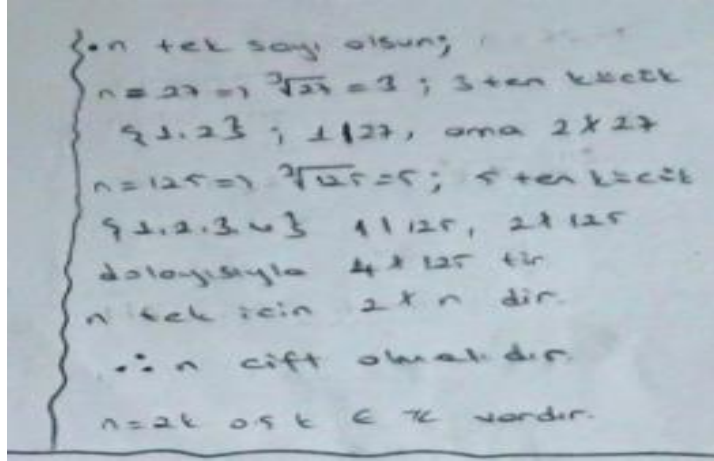 • n tek sayı olsun;
n = 27 => ∛27 = 3 ; 3 ten küçük
{1,2} ; 1|27, ama 2∤27
n = 125 => ∛125 = 5; 5 ten küçük
{1,2,3,4} 1|125, 2∤125
dolayısıyla 4∤125 tir
n tek için 2∤n dir.
∴ n çift olmalıdır.
n = 2k ö.ş k ∈ ℤ vardır.